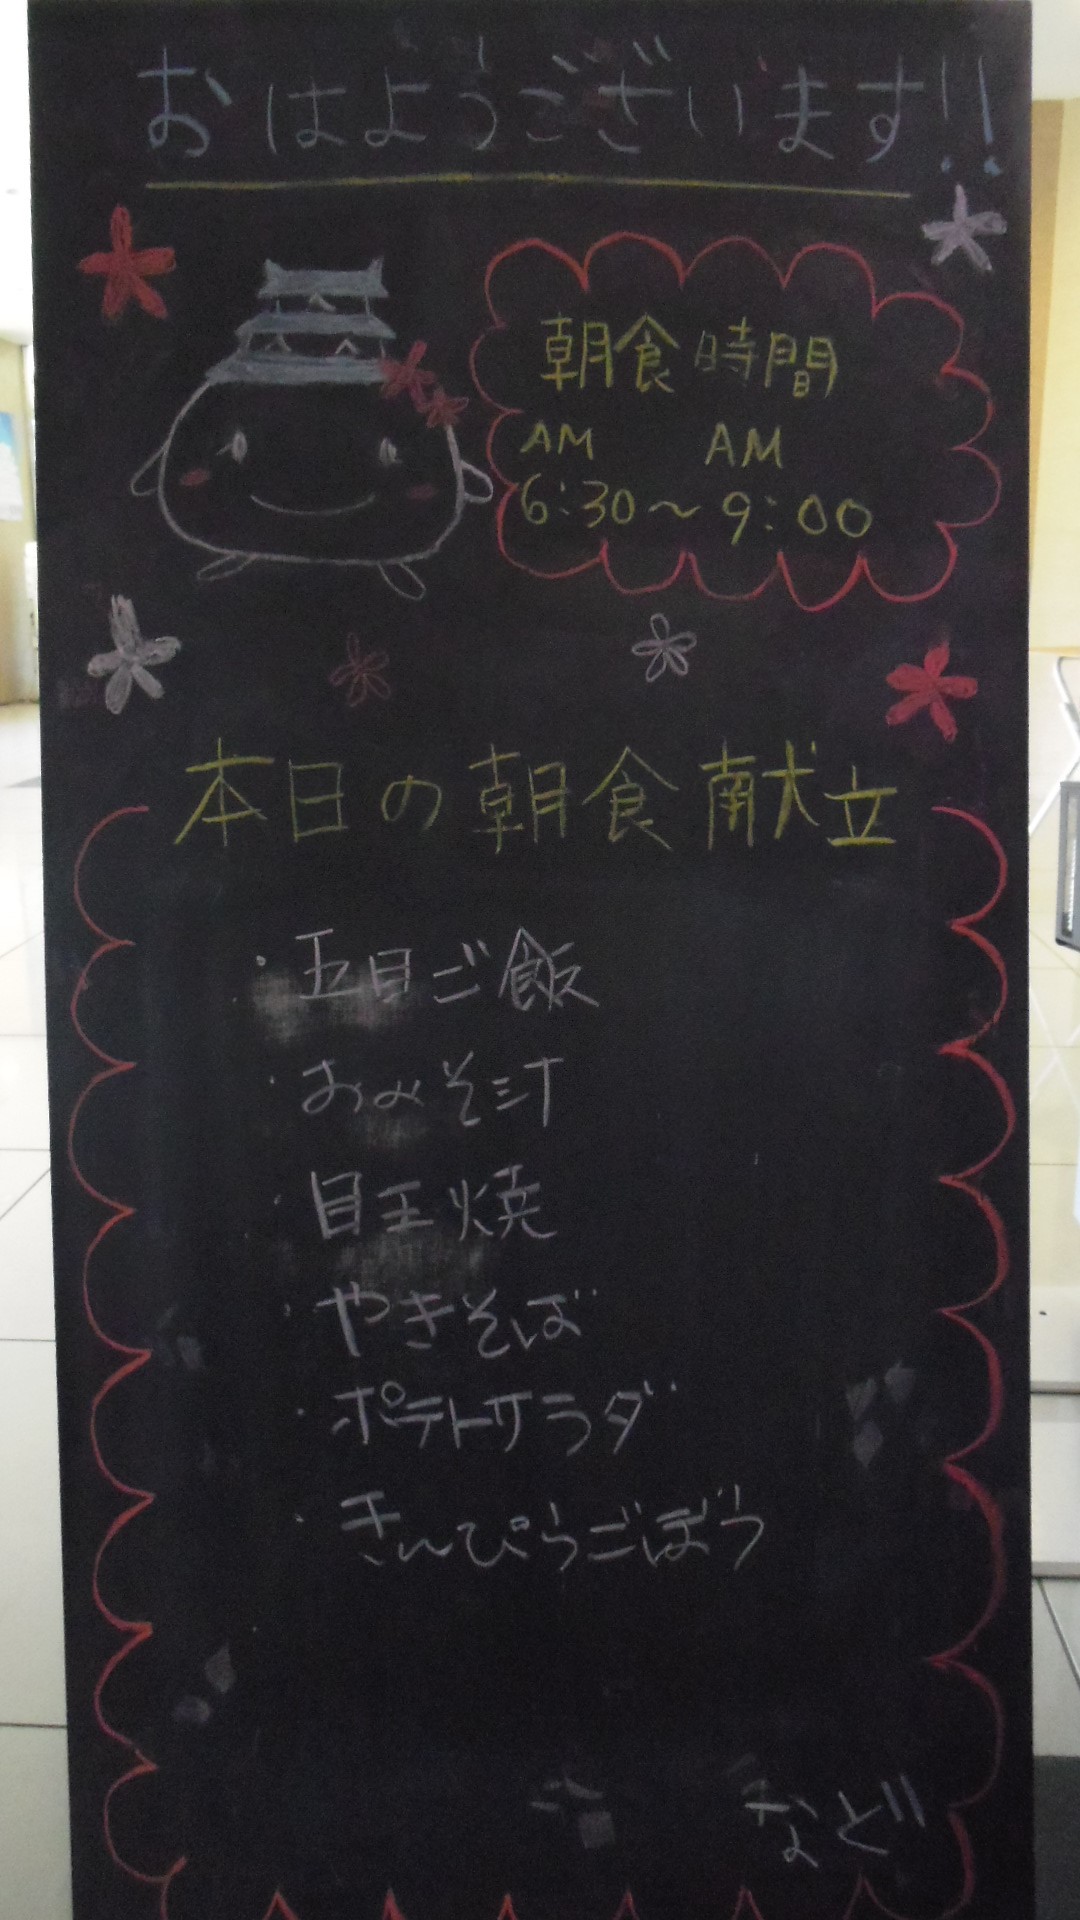 おはようございます!!
朝食時間
AM AM
6:30〜9:00
本日の朝食献立
・五目ご飯
・おみそ汁
・目玉焼
・やきそば
・ポテトサラダ
・きんぴらごぼう
など